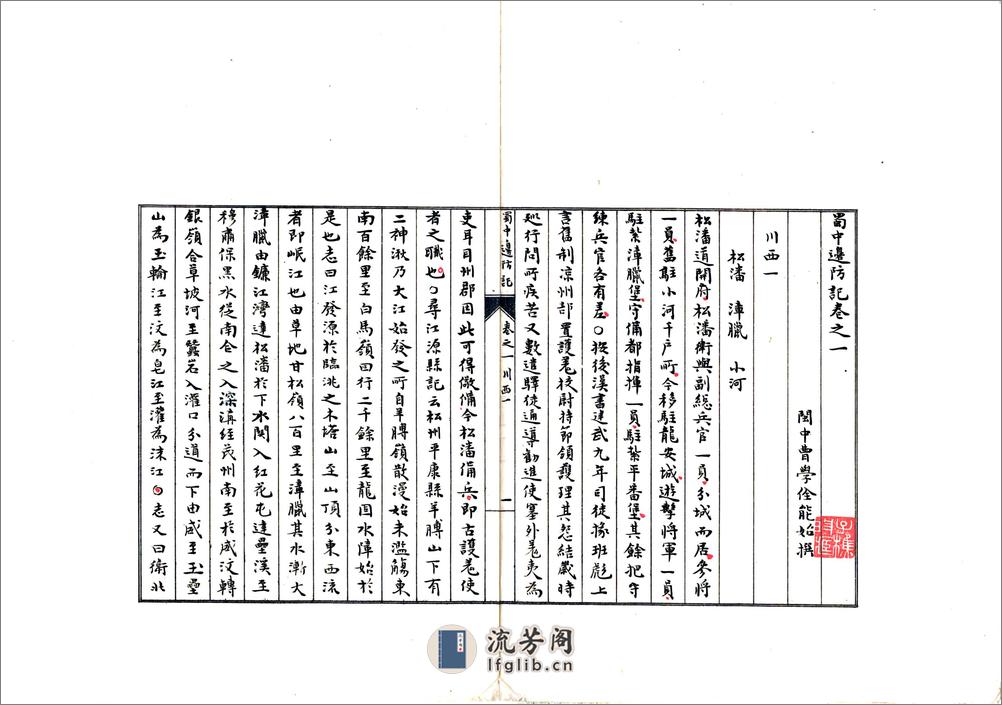 蜀中邊防記卷之一
閩中曹學佺能始撰
川西一
松潘　漳臘　小河
松潘道開府松潘衛與副總兵官一員分城而居參將
一員舊駐小河千戶所今移駐龍安城遊擊將軍一員
駐紮漳臘堡守備都指揮一員駐紮平番堡其餘把守
練兵官各有差〇按後漢書建武九年司徒掾班彪上
言舊制凉州部置護羌校尉持節領護理其怨結歲時
巡行問所疾苦又數遣驛使通導動進使塞外羌夷為
蜀中邊防記　卷之一　川西一　一
吏耳目州郡因此可得儆備今松潘備兵即古護羌使
者之職也〇尋江源縣記云松州平康縣羊膊山下有
二神湫乃大江始發之所自羊膊嶺散漫始未濫觴東
南百餘里至白馬嶺回行二千餘里至龍固水障始於
是也志曰江發源於臨洮之木塔山至山頂分東西流
者即岷江也由草地甘松嶺八百里至漳臘其水漸大
漳臘由鐮江灣達松潘於下水関入紅花屯達疊溪至
穆肅保黑水從南合之入深溝經茂州南至於威汶轉
銀嶺合草坡河至蠶崖入灌口分道而下由威至玉壘
山為玉輪江至汶為皂江至灌為沫江〇志又曰衛北
流芳阁
lfglib.cn